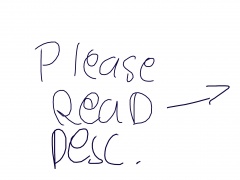 Please
Read
Desc.